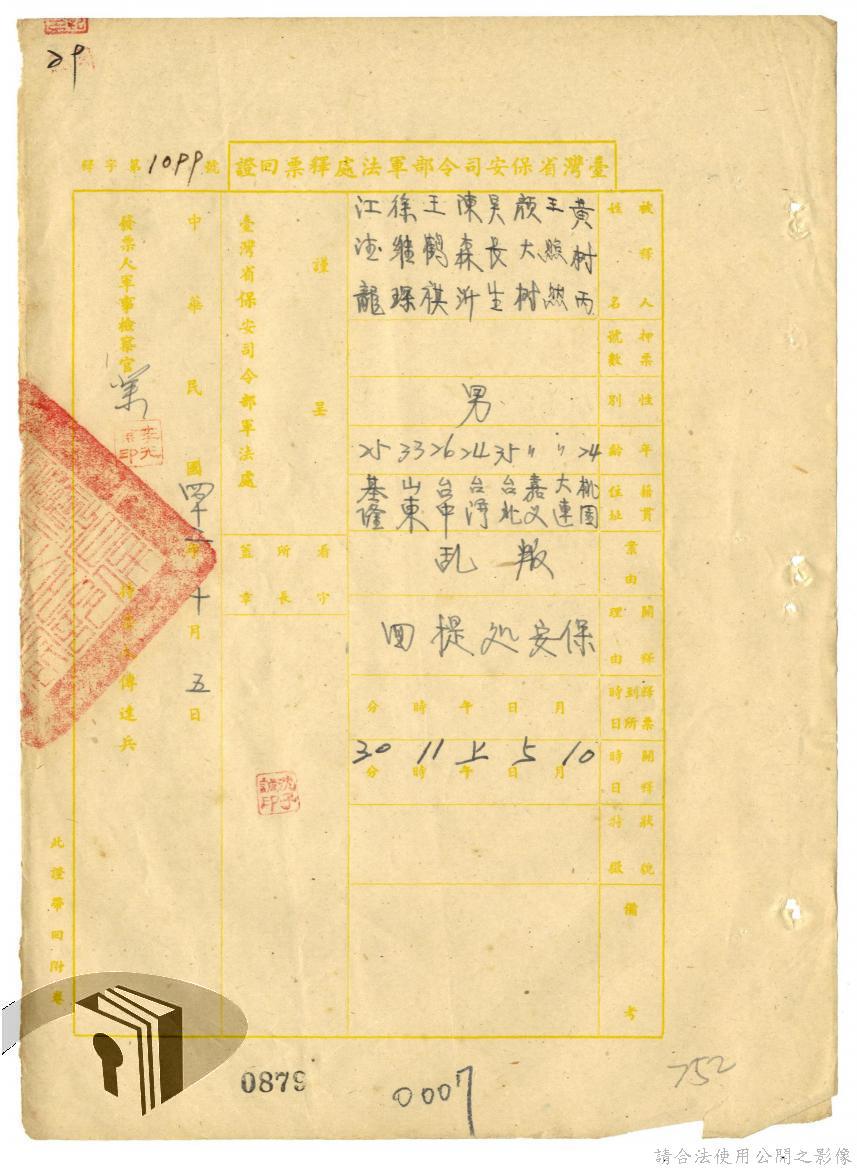 29
臺灣省保安司令部軍法處釋票回證
釋字第1099號
被釋人姓名
黃樹丙
王照然
顏大樹
吳長生
陳森沂
王鶴祺
徐維琛
江德龍
押票號數
性別
男
年齡
24
〃
〃
35
24
26
33
25
籍貫住址
桃園
大連
嘉义
台北
台灣
台中
山東
基隆
案由
叛乱
開釋理由
保安処提回
釋票到所時日
月日午時分
開釋時日
10月5日上午11時30分
狀貌特徵
備考
謹呈
臺灣省保安司令部軍法處
看守所所長蓋章
沈子誠印
中華民國四十二年十月五日
發票人軍事檢察官
持票人傳達兵
此證帶回附卷
0879
0007
752
請合法使用公開之影像